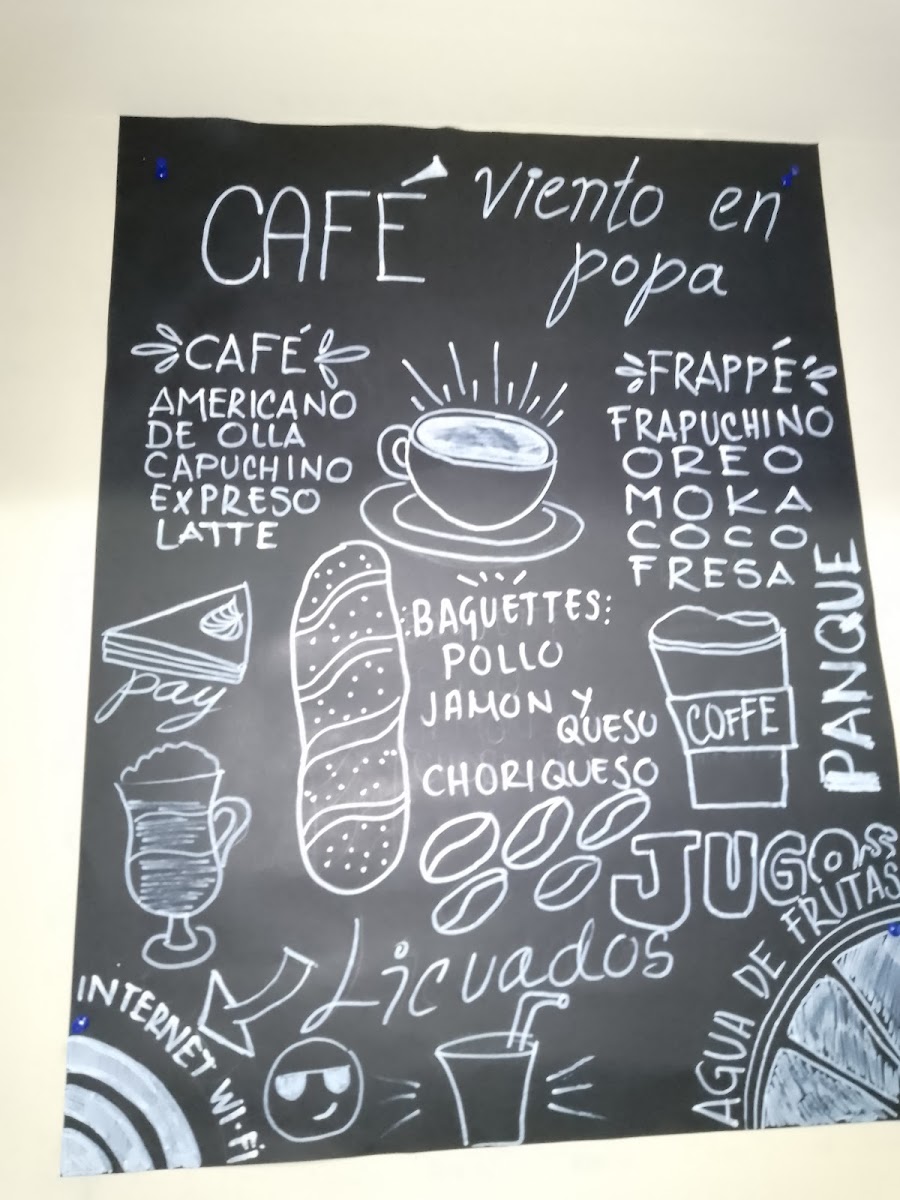 CAFÉ
viento en
popa
CAFÉ
AMERICANO
DE OLLA
CAPUCHINO
EXPRESO
LATTE
FRAPPÉ
FRAPUCHINO
OREO
MOKA
COCO
FRESA
PANQUE
pay
BAGUETTES:
POLLO
JAMON Y
QUESO
CHORIQUESO
COFFE
JUGOS
AGUA DE FRUTAS
Licuados
INTERNET WI-Fi